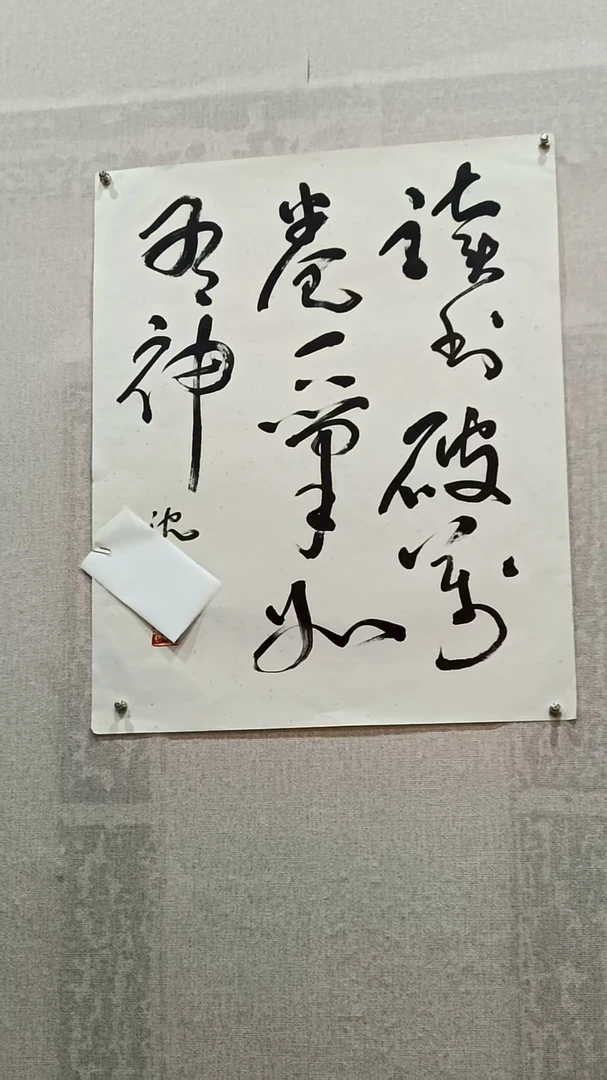 讀書破萬
卷下筆如
有神
沈